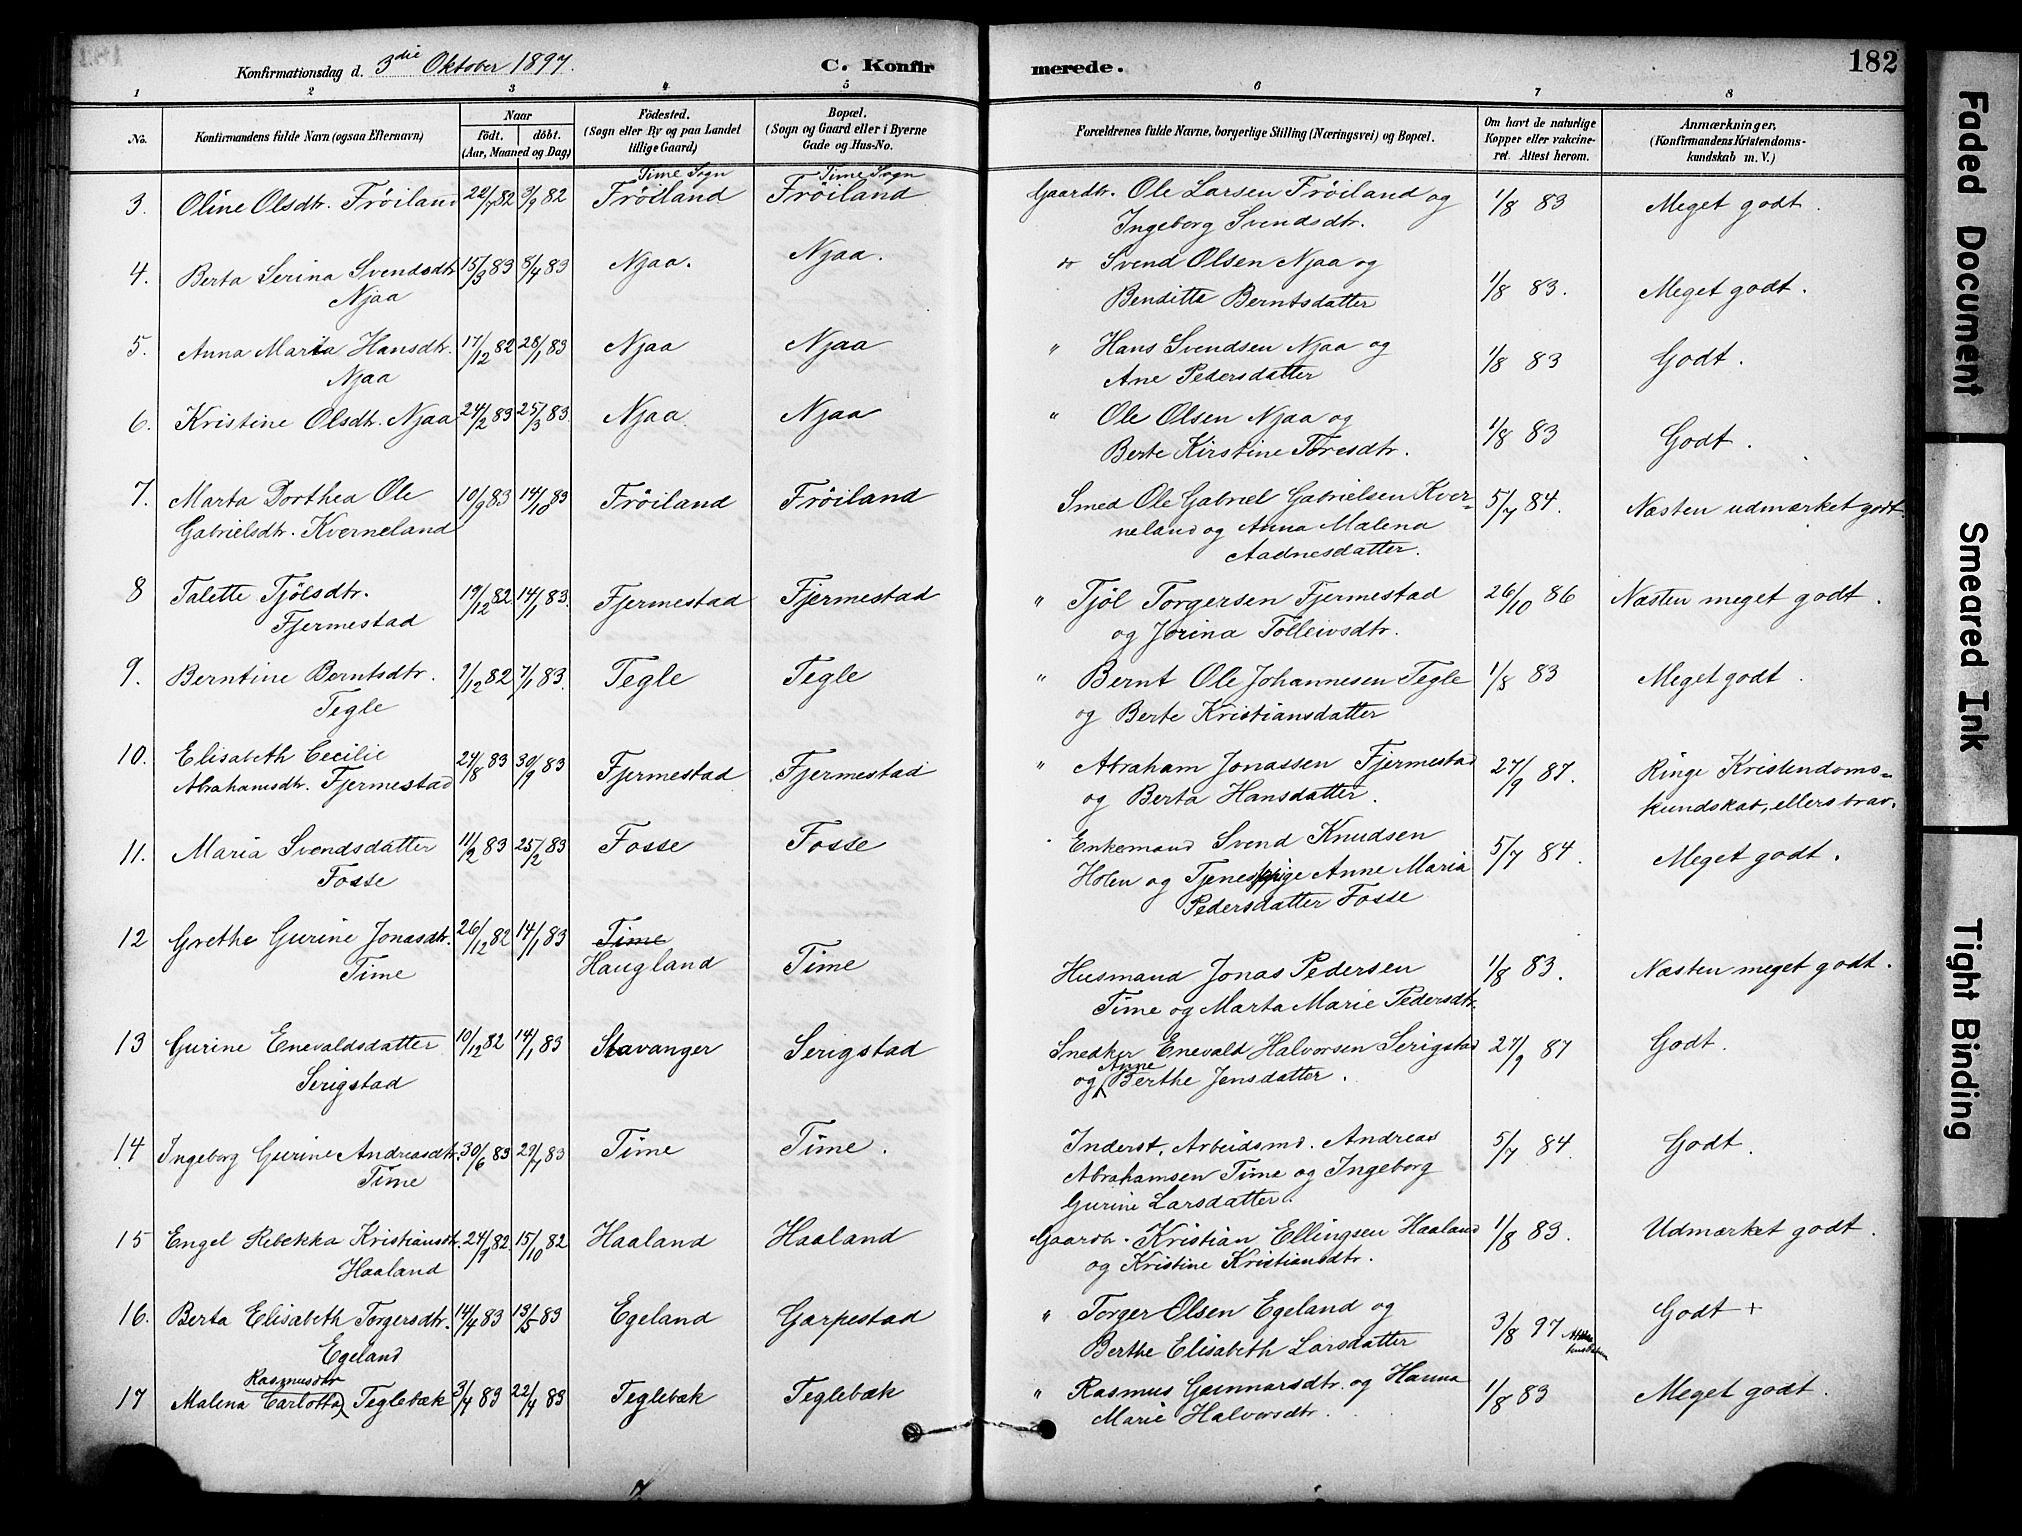 Konfirmationsdag d. 3die Oktober 1897.
C. Konfirmerede.
182
1 2 3 4 5 6 7 8
No.
Konfirmandens fulde Navn (ogsaa Efternavn)
Naar
födt. döbt.
(Aar, Maaned og Dag)
Födested.
(Sogn eller By og paa Landet
tillige Gaard)
Bopæl.
(Sogn og Gaard eller i Byerne
Gade og Hus-No.
Forældrenes fulde Navne, borgerlige Stilling (Næringsvei) og Bopæl.
Om havt de naturlige
Kopper eller vakcine-
ret. Attest herom.
Anmærkninger.
(Konfirmandens Kristendoms-
kundskab m. V.)
Time Sogn Time Sogn
3. Oline Olsdtr. Fröiland 22/7 82 3/9 82 Fröiland Fröiland Gaardtr. Ole Larsen Fröiland og 1/8 83 Meget godt.
Ingeborg Svendsdtr.
4. Berta Serina Svendsdtr 15/3 83 8/4 83 Njaa. Njaa. do Svend Olsen Njaa og 1/8 83. Meget godt.
Njaa Benditte Berntsdatter
5. Anna Maria Hansdtr. 17/12 82 28/1 83 Njaa Njaa " Hans Svendsen Njaa og 1/8 83 Godt.
Njaa Ane Pedersdatter
6. Kristine Olsdtr. Njaa 24/2 83 25/3 83 Njaa Njaa " Ole Olsen Njaa og 1/8 83 Godt.
Berte Kirstine Toresdtr.
7. Marta Dorthea Ole 10/9 83 14/10 83 Fröiland Fröiland Smed Ole Gabriel Gabrielsen Kver- 5/7 84. Næsten udmærket godt.
Gabrielsdtr. Kverneland neland og Anna Malena
Aadnesdatter.
8 Talette Tjölsdtr. 19/12 82 14/1 83. Fjermestad Fjermestad " Tjöl Torgersen Fjermestad 26/10 86 Næsten meget godt.
Fjermestad og Jorina Tolleivsdtr.
9. Berntine Berntsdtr. 1/12 82 7/1 83. Tegle Tegle " Bernt Ole Johannesen Tegle 1/8 83 Meget godt.
Tegle og Berte Kristiansdatter
10. Elisabeth Cecilie 24/8 83 30/9 83 Fjermestad Fjermestad " Abraham Jonassen Fjermestad 27/9 87. Ringe Kristendoms-
Abrahamsdtr. Fjermestad og Berta Hansdatter. kundskab, ellers brav.
11. Maria Svendsdatter 11/2 83 25/2 83 Fosse Fosse Enkemand Svend Knudsen 5/7 84. Meget godt.
Fosse Holen og Tjenespige Anne Maria
Pedersdatter Fosse
12 Grethe Gurine Jonasdtr. 26/12 82 14/1 83 Time
Time Haugland Time Husmand Jonas Pedersen 1/8 83. Næsten meget godt.
Time og Marta Marie Pedersdtr.
13 Gurine Enevaldsdatter 10/12 82 14/1 83 Stavanger Serigstad Snedker Enevald Halvorsen Serigstad 27/9 87 Godt.
Serigstad og Anne Berthe Jensdatter.
14 Ingeborg Gurine Andreasdtr. 30/6 83 29/7 83 Time Time. Inderst, Arbeidsmd. Andreas 5/7 84. Godt.
Time Abrahamsen Time og Ingeborg
Gurine Larsdatter.
15 Engel Rebekka Kristiansdtr. 24/9 82. 15/10 82 Haaland Haaland Gaardtr. Kristian Ellingsen Haaland 1/8 83. Udmærket godt.
Haaland og Kristine Kristiansdtr.
16. Berta Elisabeth Torgersdtr. 14/4 83 13/5 83 Egeland Garpestad " Torger Olsen Egeland og 3/8 97 Godt +
Egeland Berthe Elisabeth Larsdatter
17 Malena Carlotta Rasmusdtr Teglebæk 3/4 83 22/4 83 Teglebæk Teglebæk " Rasmus Gunnarsdtr. og Hanna 1/8 83 Meget godt.
Marie Halvorsdtr.
Faded Document
Smeared Ink
Tight Binding